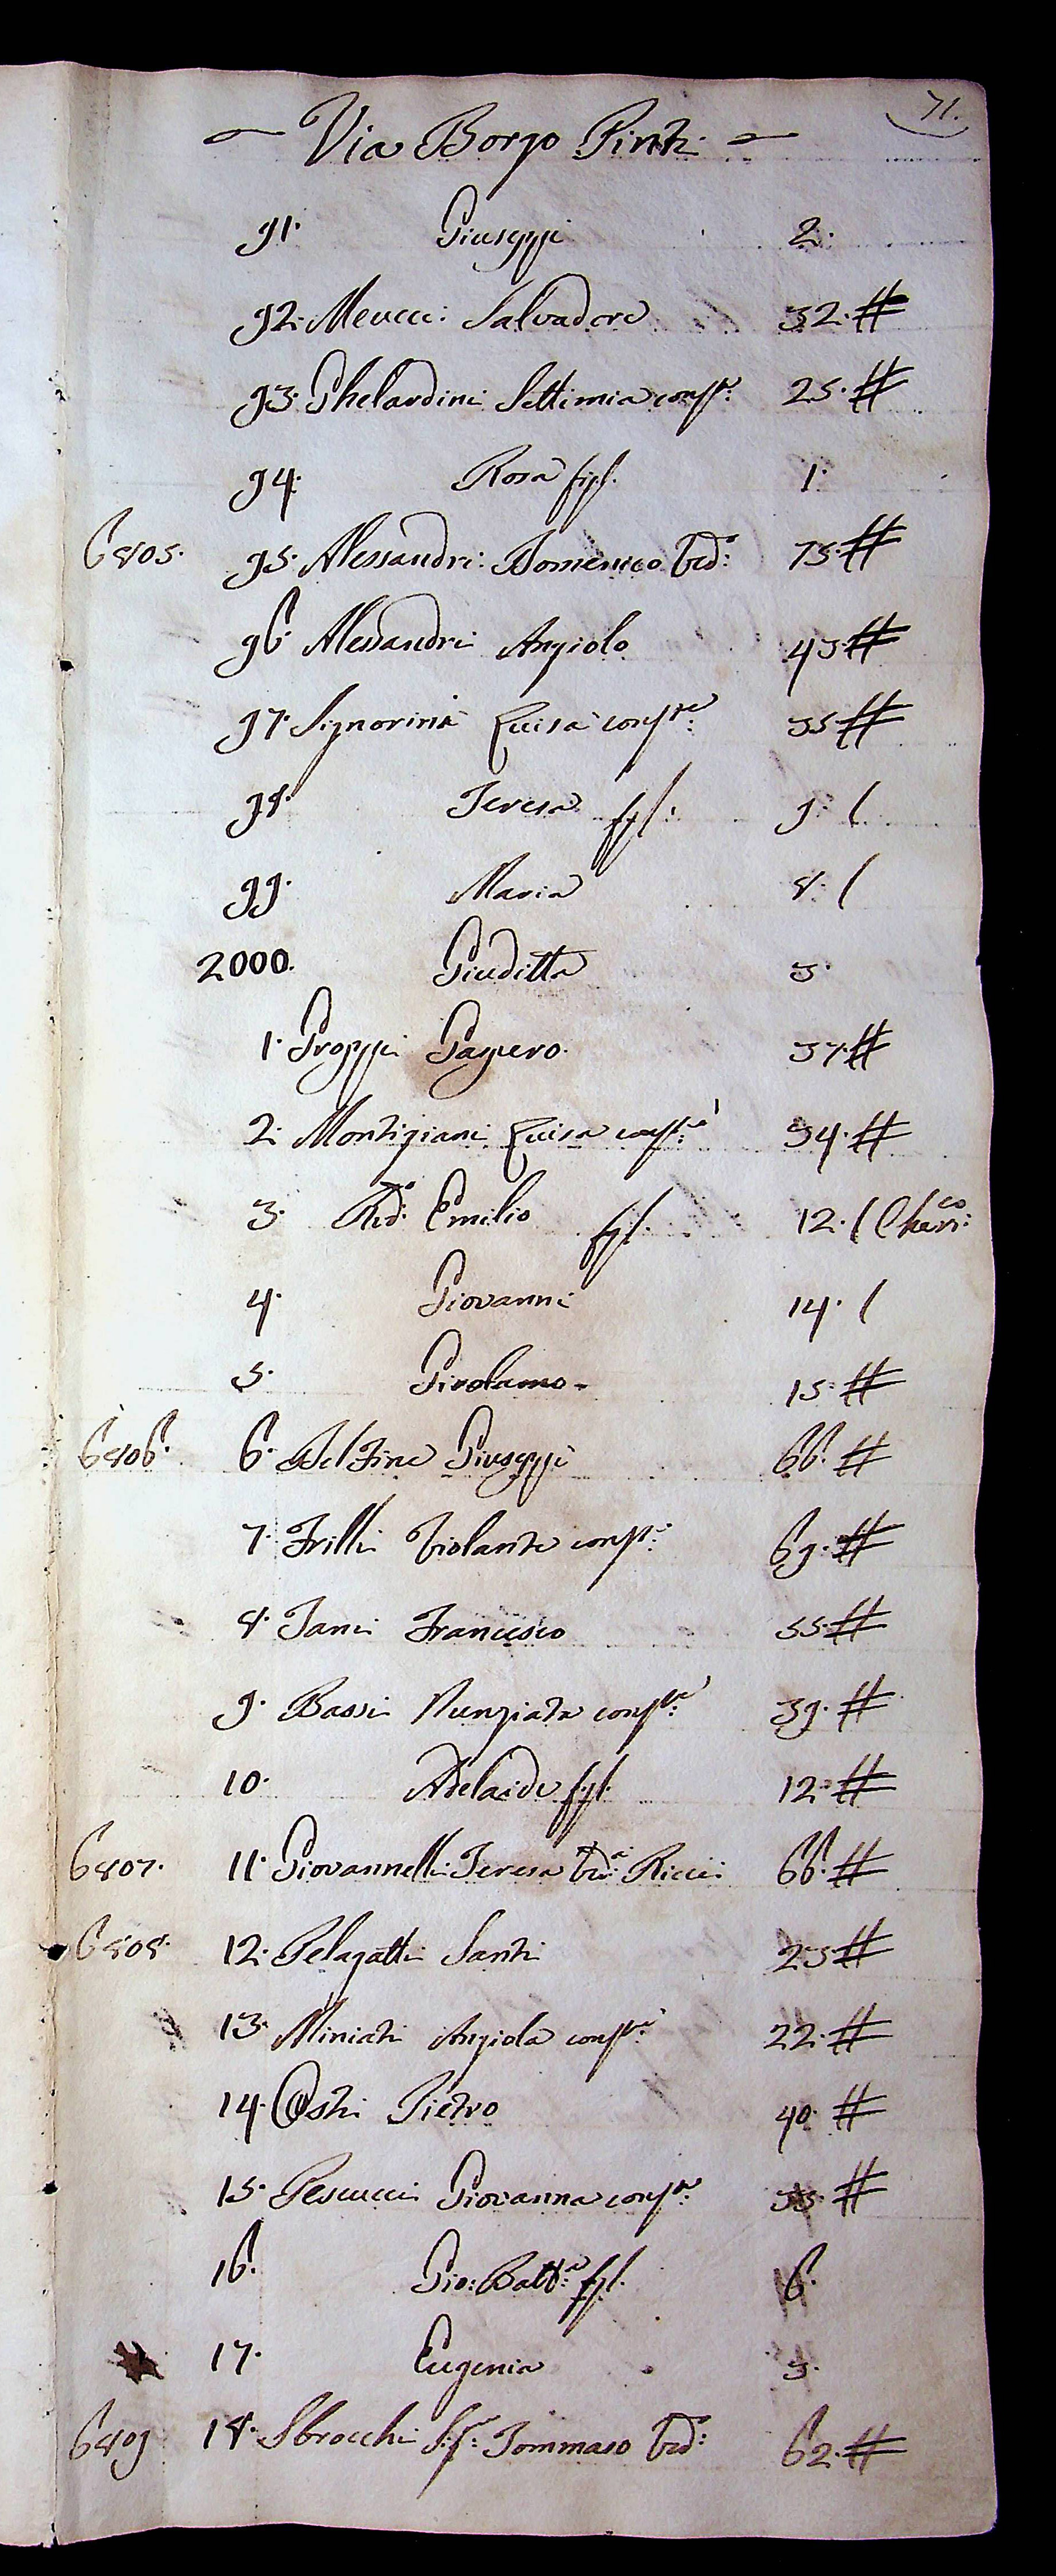 71.
Via Borgo Pinti
91. Giuseppe 2.
92. Meucci Salvadore 32. #
93. Ghelardini Settimia consr: 25. #
94. Rosa figl. 1.
6805. 95. Alessandri Domenico Ved:o 75. #
96. Alessandri Angiolo 43. #
97. Signorini Luisa cons:te 35 #
98. Teresa figl: 9. /
99. Maria 8. /
2000. Giuditta 3.
1. Groppi Gaspero 37. #
2. Montigiani Luisa cons:te 34. #
3. Rd:o Emilio figl. 12. / Cheri:co
4. Giovanni 14. /
5. Girolamo 15. #
6806. 6. Del Fine Giuseppe 66. #
7. Frilli Violante cons:te 69. #
8. Tani Francesco 55 #
9. Bassi Nunziata cons:te 39. #
10. Adelaide figl. 12. #
6807. 11. Giovannelli Teresa Ved:a Ricci 66. #
6808. 12. Pelagatti Santi 23 #
13. Miniati Angiola cons:te 22. #
14. Osti Pietro 40. #
15. Pescucci Giovanna cons:te 33. #
16. Gio: Batt:a figl. 6.
17. Eugenia 3.
6809 18. Sbrocchi Tommaso Ved: 62. #